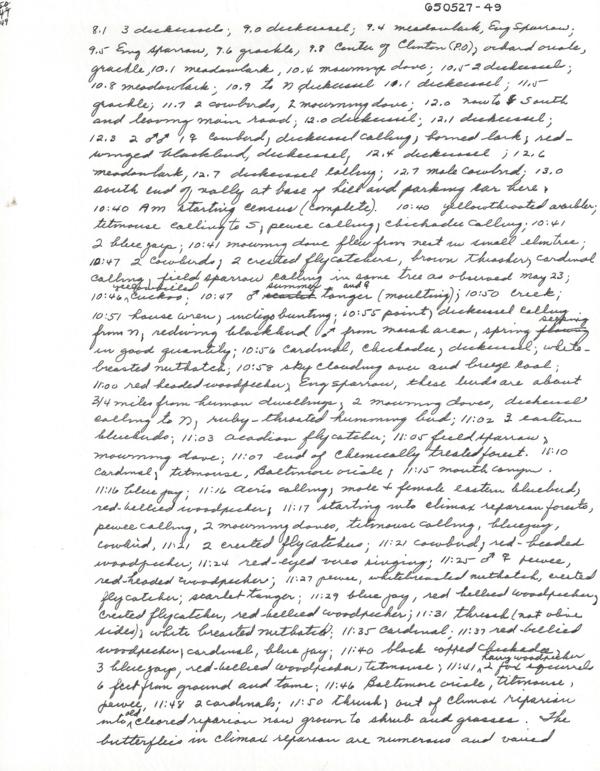 650527-49
8.1 3 dickcissels; 9.0 dickcissel; 9.4 meadowlark, Eng Sparrow;
9.5 Eng sparrow, 9.6 grackle, 9.8 Center of Clinton (P.O.), orchard oriole,
grackle, 10.1 meadowlark, 10.4 mourning dove; 10.5 2 dickcissel;
10.8 meadowlark; 10.9 to N dickcissel 10.1 dickcissel; 11.5
grackle; 11.7 2 cowbirds, 2 mourning dove; 12.0 now to S South
and leaving main road; 12.0 dickcissel; 12.1 dickcissel;
12.3 2 ♂♂ 1 ♀ Cowbird, dickcissel calling, horned lark; red-
winged blackbird, dickcissel, 12.4 dickcissel; 12.6
meadowlark, 12.7 dickcissel calling; 12.7 male cowbird; 13.0
South end of valley at base of hill and parking car here,
10:40 AM starting census (complete). 10:40 yellowthroated warbler;
titmouse calling to S; pewee calling, chickadee calling; 10:41
2 blue jays; 10:41 mourning dove flew from nest in small elm tree;
10:47 2 cowbirds; 2 crested flycatchers, brown thrasher, cardinal
calling, field sparrow calling in same tree as observed May 23;
10:46 yellowbilled cuckoo; 10:47 ♂ scarlet summer tanager and ♀ (moulting); 10:50 creek;
10:51 house wren; indigo bunting; 10:55 point; dickcissel calling
from N; redwing blackbird ♂ from marsh area, spring flowing seeping
in good quantity; 10:56 cardinal, chickadee; dickcissel; white-
breasted nuthatch; 10:58 sky clouding over and breeze cool;
11:00 red headed woodpecker; Eng sparrow, these birds are about
3/4 miles from human dwellings; 2 mourning doves, dickcissel
calling to N; ruby-throated humming bird; 11:02 3 eastern
bluebirds; 11:03 acadian flycatcher; 11:05 field sparrow;
mourning dove; 11:07 end of chemically treated forest. 11:10
cardinal; titmouse, Baltimore oriole; 11:15 mouth canyon.
11:16 blue jay; 11:16 Acris calling; male & female eastern bluebird;
red-bellied woodpecker; 11:17 starting into climax reparian forests,
pewee calling, 2 mourning doves, titmouse calling, bluejay,
cowbird, 11:21 2 crested flycatchers; 11:21 cowbird; red-headed
woodpecker; 11:24 red-eyed vireo singing; 11:25 ♂ ♀ pewee,
red-headed woodpecker; 11:27 pewee, whitebreasted nuthatch, crested
flycatcher; scarlet tanager; 11:29 blue jay, red bellied woodpecker;
crested flycatcher, red-bellied woodpecker; 11:31 thrush (not olive
sides); white breasted nuthatch; 11:35 cardinal; 11:37 red-bellied
woodpecker; cardinal, blue jay; 11:40 black capped chickadee,
3 blue jays, red-bellied woodpecker, titmouse; 11:41 hairy woodpecker 2 fox squirrels
6 feet from ground and tame; 11:46 Baltimore oriole, titmouse,
pewee, 11:48 2 cardinals; 11:50 thrush; out of climax reparian
into old cleared reparian now grown to shrub and grasses. The
butterflies in climax reparian are numerous and varied